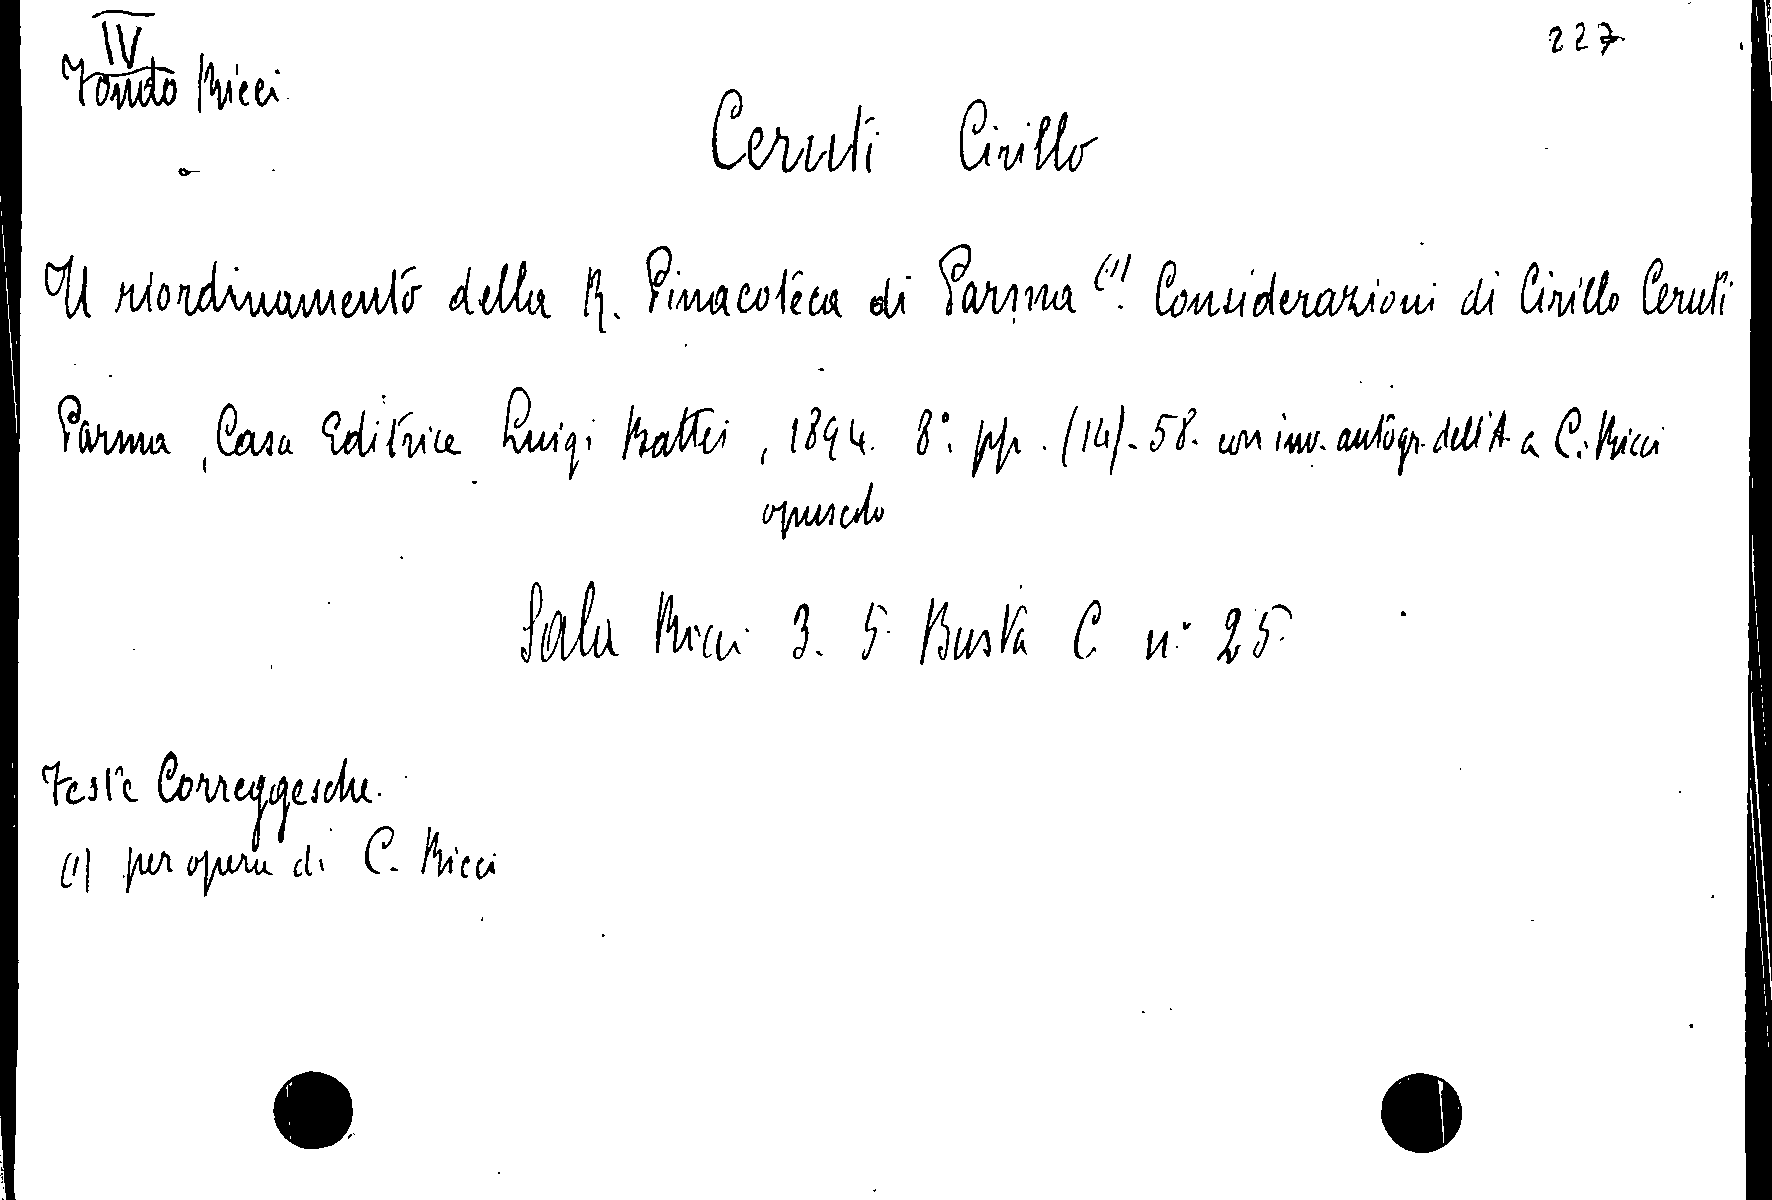 IV
227
Fondo Ricci
Ceruti Cirillo
Il riordinamento della R. Pinacoteca di Parma (1). Considerazioni di Cirillo Ceruti
Parma, Casa Editrice Luigi Battei, 1894. 8°. pp. (14)-58. con inv. autogr. dell'A. a C. Ricci
opuscolo
Sala Ricci 3. 5. Busta C. n° 25.
Feste Correggesche.
(1) per opera di C. Ricci